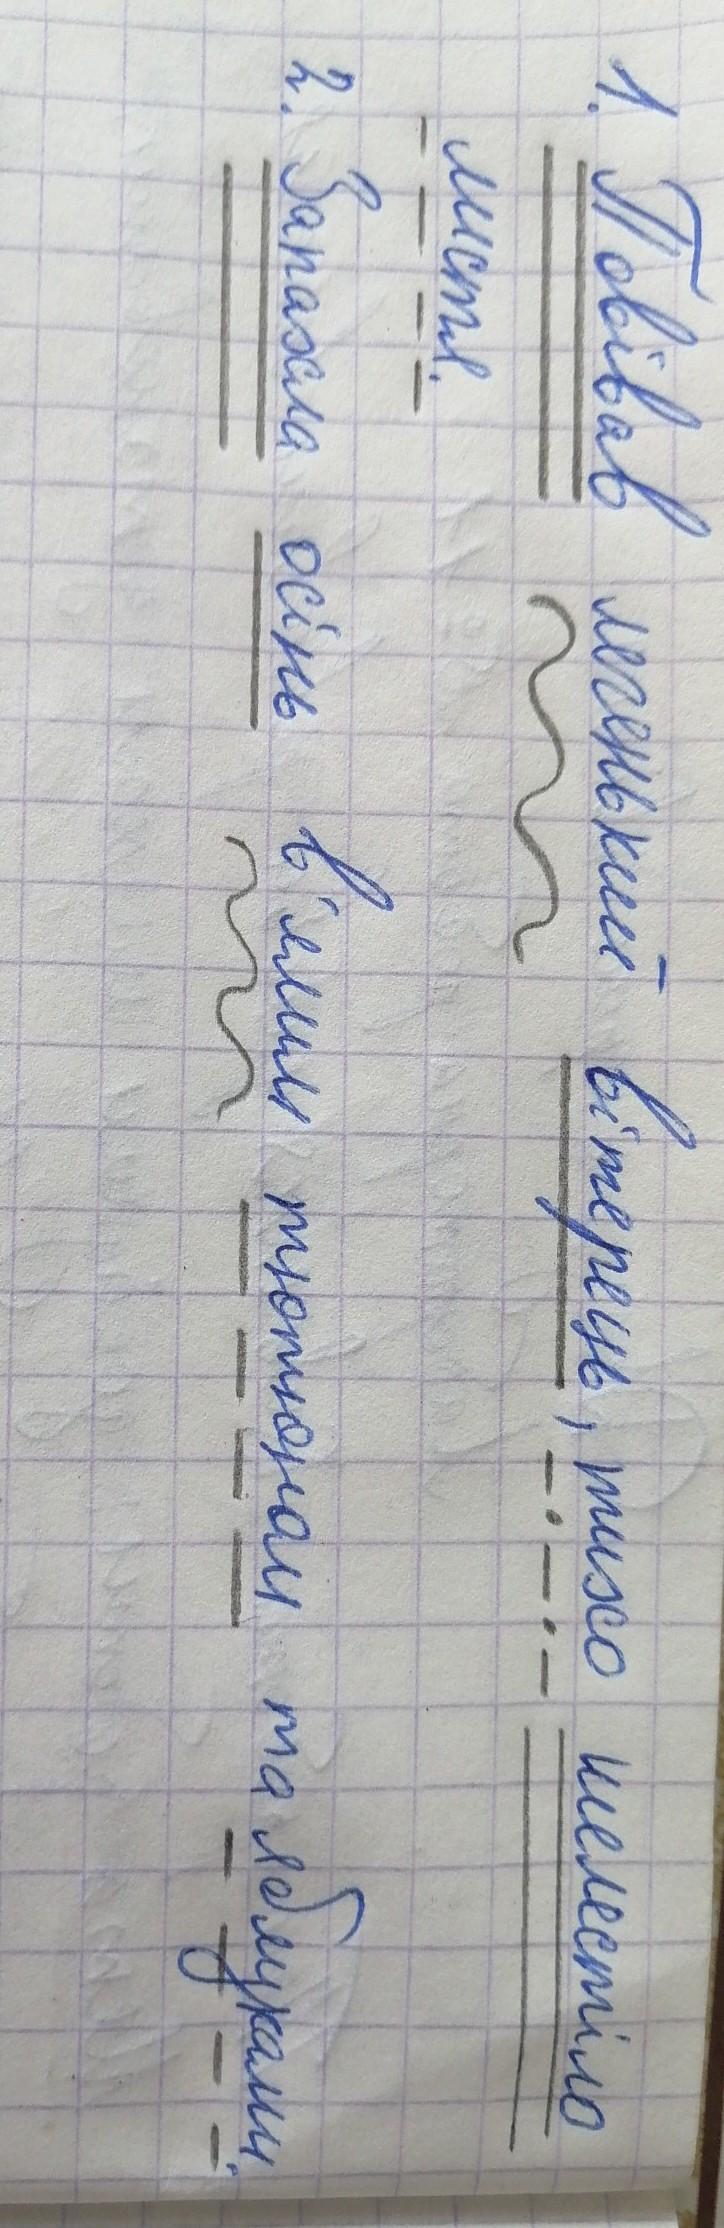 1. Повівав легенький вітерець, тихо шелестіло
листя.
2. Запахла осінь в'ялим тютюном та яблуками.